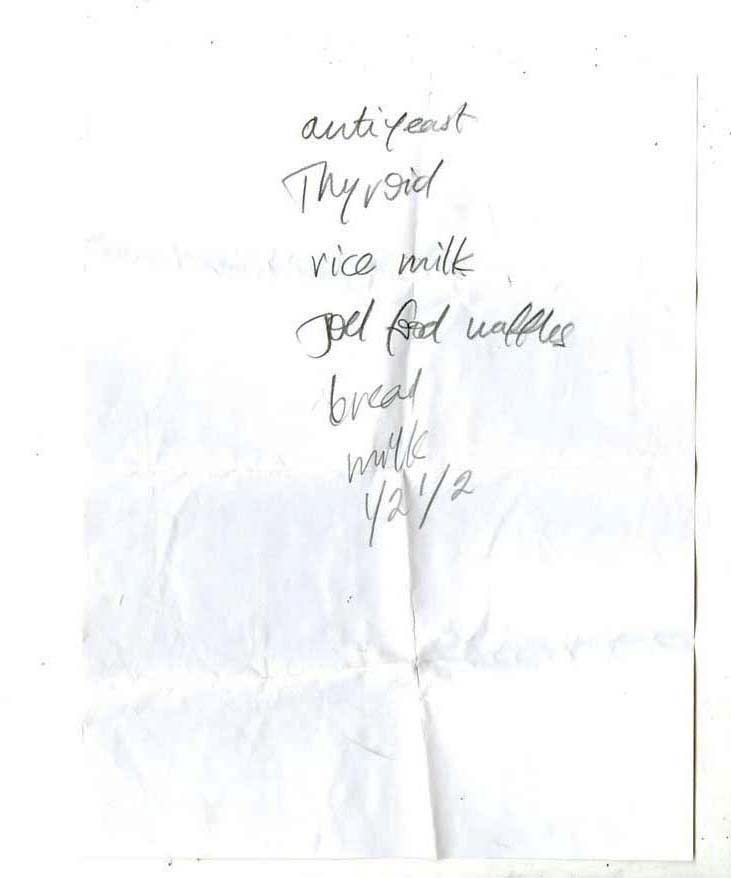 antiyeast
Thyroid
rice milk
Joel food waffles
bread
milk
1/2 1/2